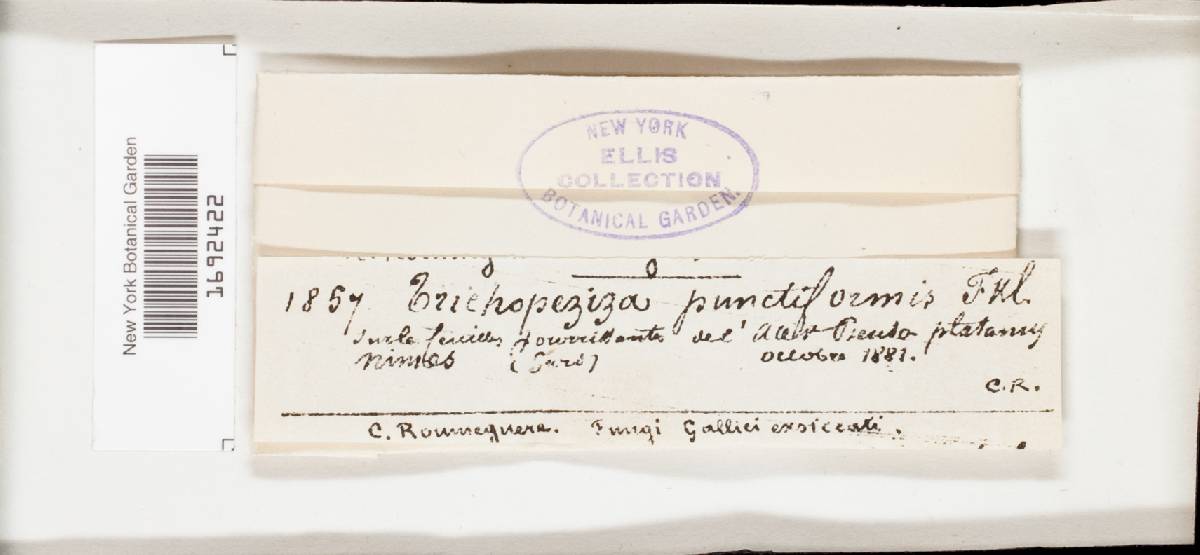 New York Botanical Garden
1692422
NEW YORK
ELLIS
COLLECTION
BOTANICAL GARDEN.
1857 Trichopeziza punctiformis Fkl.
Sur le feuilles pourrissantes de l' Acer Pseudo platanus
Nimes (Gard) octobre 1881.
C.R.
C. Roumeguere. Fungi Gallici exsiccati.